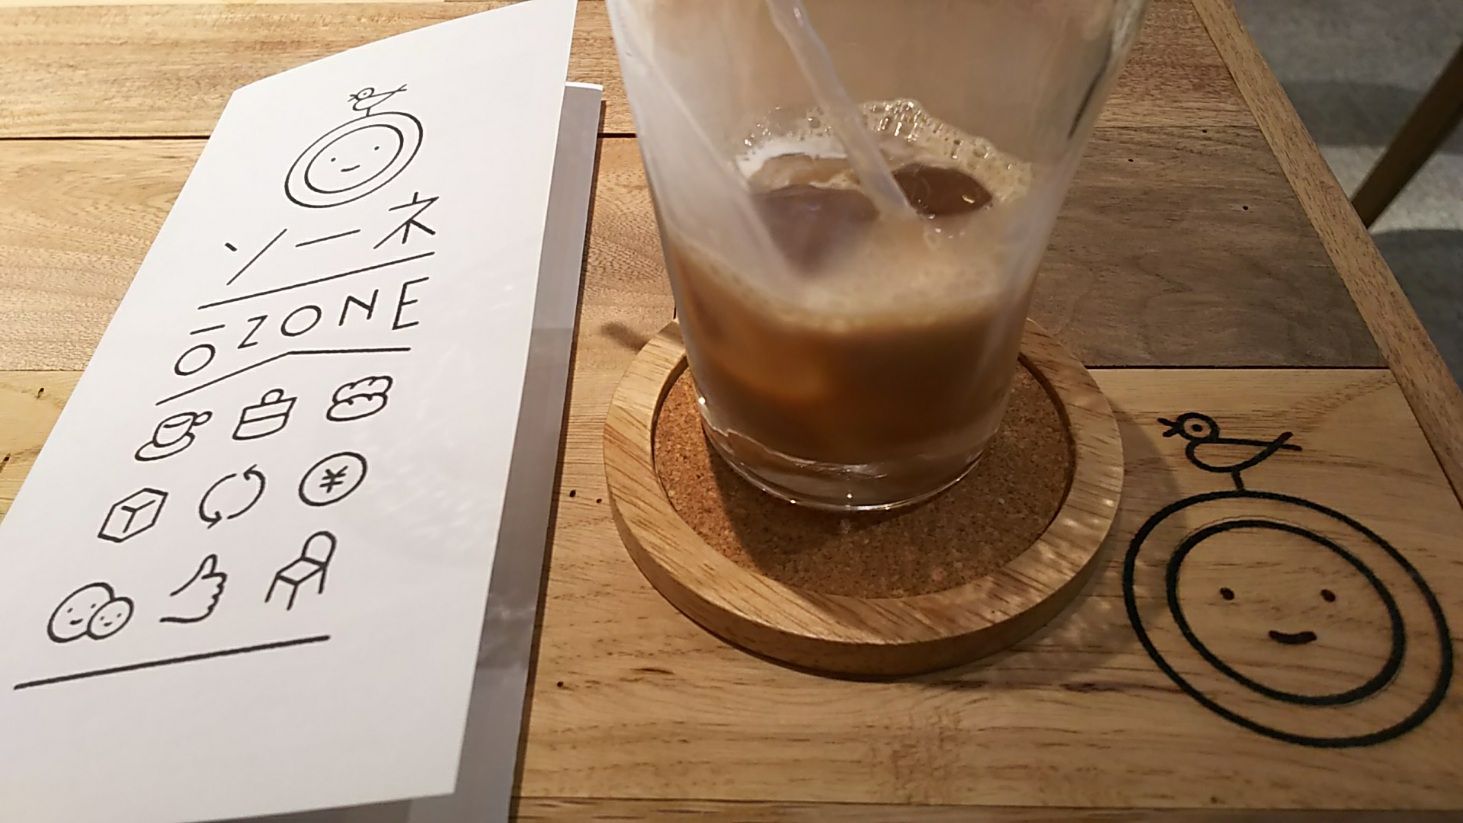 ソーネ
ŌZONE
¥